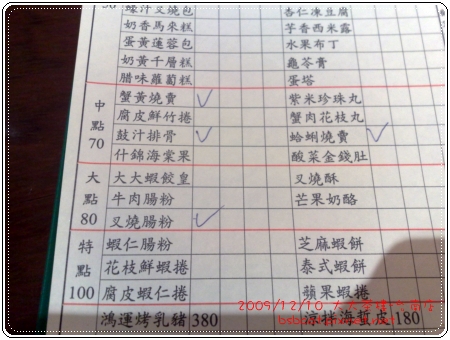 蠔汁叉燒包 杏仁凍豆腐
奶香馬來糕 芋香西米露
蛋黃蓮蓉包 水果布丁
奶黃千層糕 龜苓膏
腊味蘿蔔糕 蛋塔
中點 70
蟹黃燒賣 紫米珍珠丸
腐皮鮮竹捲 蟹肉花枝丸
鼓汁排骨 蛤蜊燒賣
什錦海棠果 酸菜金錢肚
大點 80
大大蝦餃皇 叉燒酥
牛肉腸粉 芒果奶酪
叉燒腸粉
特點 100
蝦仁腸粉 芝麻蝦餅
花枝鮮蝦捲 泰式蝦餅
腐皮蝦仁捲 蘋果蝦捲
鴻運烤乳豬 380 涼拌海蜇皮 180
2009/12/10